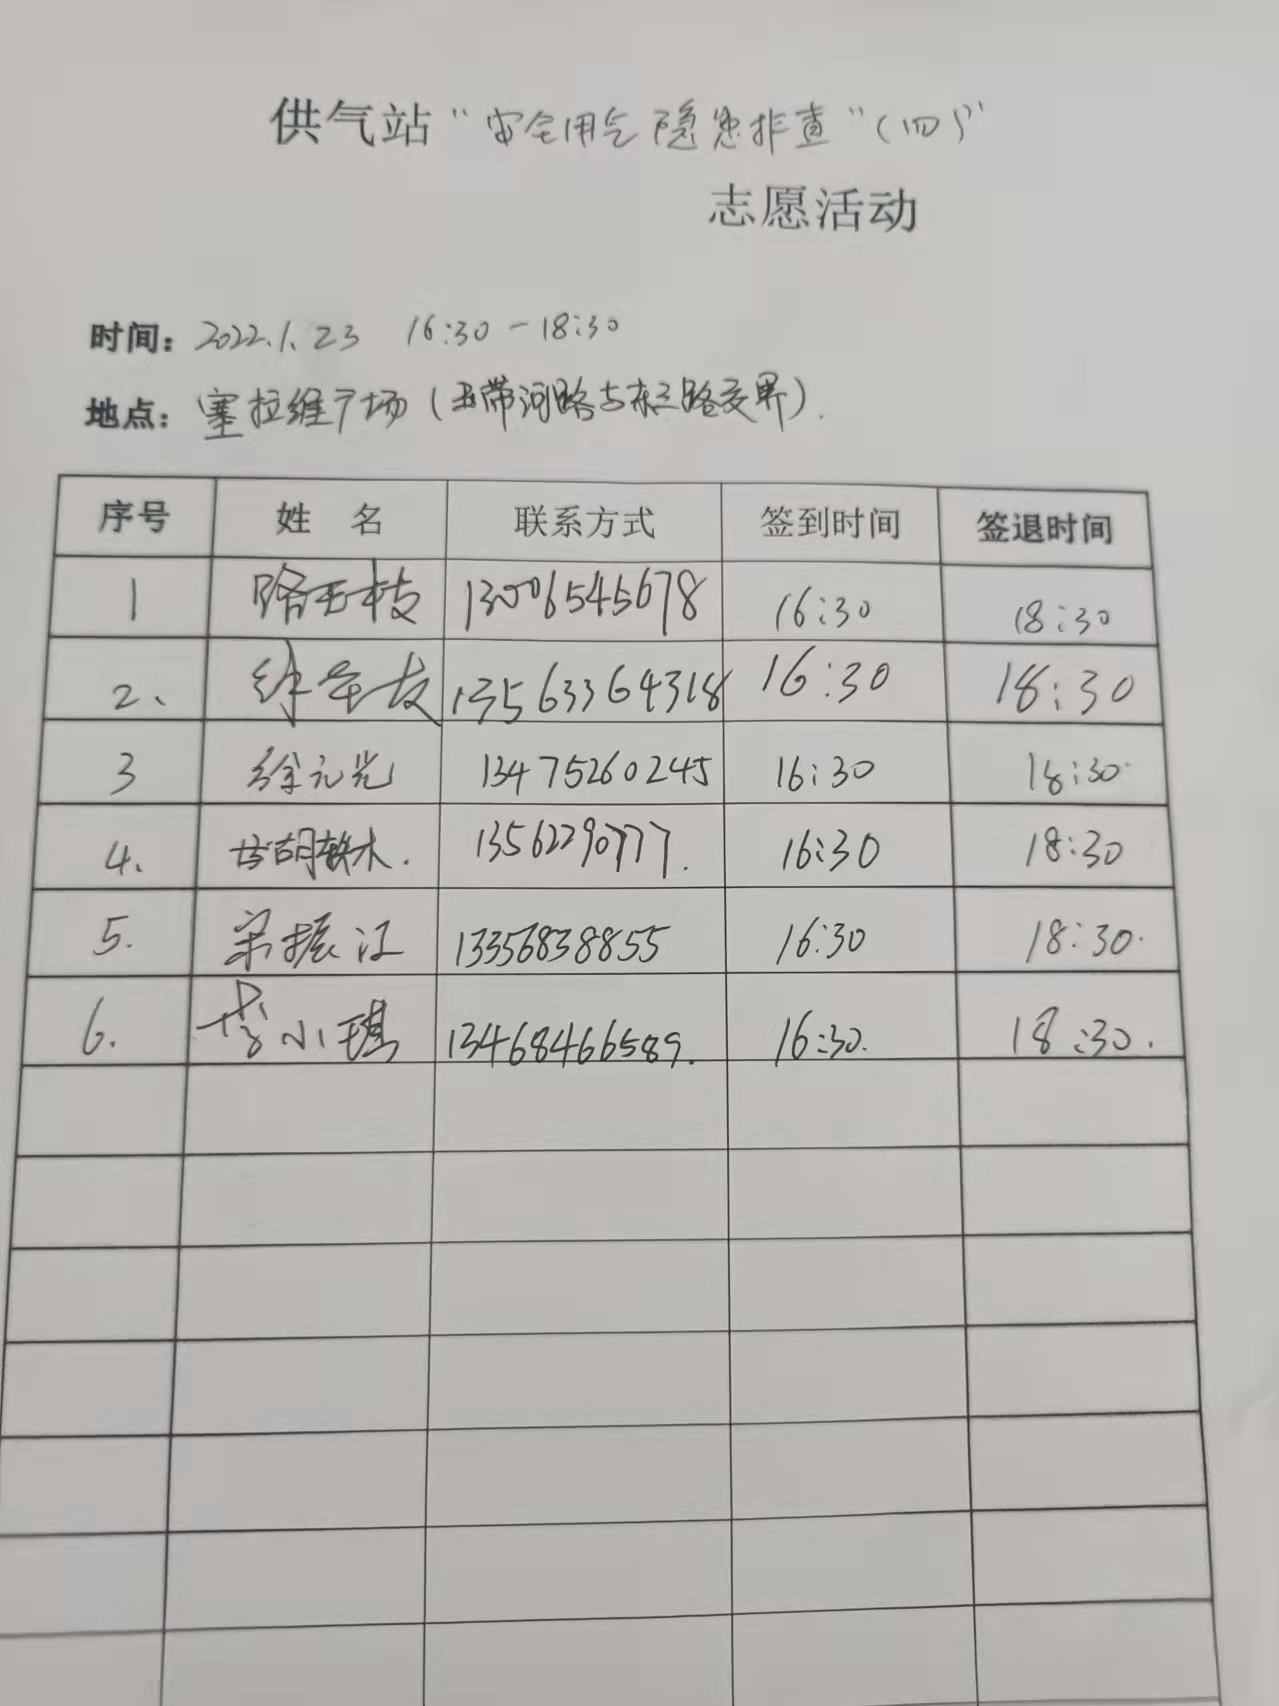 供气站“安全用气隐患排查”（四）”
志愿活动
时间：2022.1.23 16:30-18:30
地点：塞拉维广场（玉带河路与东三路交界）.
序号 姓 名 联系方式 签到时间 签退时间
1 路玉枝 13006545678 16:30 18:30
2、 友 13563364318 16:30 18:30
3 徐元光 13475260245 16:30 18:30
4. 胡 木. 13562290777. 16:30 18:30
5. 宋振江 13356838855 16:30 18:30.
6. 小琪 13468466589. 16:30. 18:30.